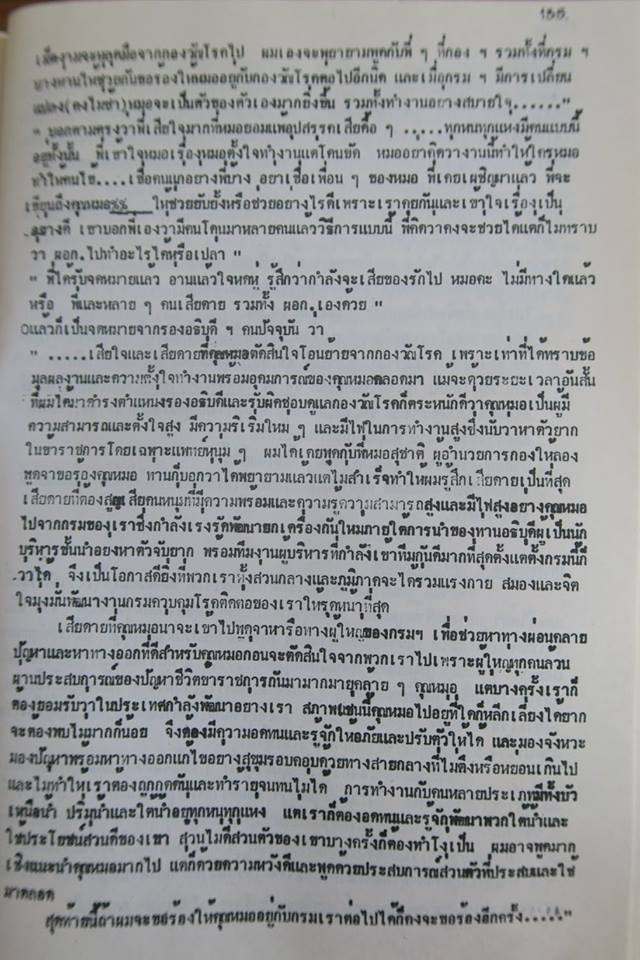 155.
เมื่องานจะหลุดมือจากกองวัณโรคไป ผมเองจะพยายามพูดกับพี่ ๆ ที่กอง ฯ รวมทั้งที่กรม ฯ
บางท่านให้ช่วยกันขอร้องให้หมออยู่กับกองวัณโรคต่อไปอีกนิด และเมื่อกรม ฯ มีการเปลี่ยน
แปลง(คงไม่ช้า)หมอจะเป็นตัวของตัวเองมากยิ่งขึ้น รวมทั้งทำงานอย่างสบายใจ......"
" บอกตามตรงว่าพี่เสียใจมากที่หมอยอมแพ้อุปสรรคเสียดื้อ ๆ .....ทุกหนทุกแห่งมีคนแบบนี้
อยู่ทั้งนั้น พี่เข้าใจหมอเรื่องหมอตั้งใจทำงานแต่โดนขัด หมออย่าคิดว่างานนี้ทำให้ใครหมอ
ทำให้คนไข้....เชื่อคนแก่อย่างพี่บ้าง อย่าเชื่อเพื่อน ๆ ของหมอ ที่เคยเผชิญมาแล้ว ที่จะ
เขียนถึงคุณหมอ ให้ช่วยยับยั้งหรือช่วยอย่างไรดีเพราะเราคุยกันและเข้าใจเรื่องเป็น
อย่างดี เขาบอกพี่เองว่ามีคนโดนมาหลายคนแล้ววิธีการแบบนี้ พี่คิดว่าคงจะช่วยได้แต่ก็ไม่ทราบ
ว่า ผอก.ไปทำอะไรได้หรือเปล่า "
" พี่ได้รับจดหมายแล้ว อ่านแล้วใจหดหู่ รู้สึกว่ากำลังจะเสียของรักไป หมอคะ ไม่มีทางใดแล้ว
หรือ พี่และหลาย ๆ คนเสียดาย รวมทั้ง ผอก.เองด้วย "
แล้วก็เป็นจดหมายจากรองอธิบดี ฯ คนปัจจุบัน ว่า
" .....เสียใจและเสียดายที่คุณหมอตัดสินใจโอนย้ายจากกองวัณโรค เพราะเท่าที่ได้ทราบข้อ
มูลผลงานและความตั้งใจทำงานพร้อมอุดมการณ์ของคุณหมอตลอดมา แม้จะด้วยระยะเวลาอันสั้น
ที่ผมได้มาดำรงตำแหน่งรองอธิบดีและรับผิดชอบดูแลกองวัณโรคก็ตระหนักดีว่าคุณหมอเป็นผู้มี
ความสามารถและตั้งใจสูง มีความริเริ่มใหม่ ๆ และมีไฟในการทำงานสูงซึ่งนับว่าหาตัวยาก
ในข้าราชการโดยเฉพาะแพทย์หนุ่ม ๆ ผมได้เคยพูดกับพี่หมอสุชาติ ผู้อำนวยการกองให้ลอง
พูดจาขอร้องคุณหมอ ท่านก็บอกว่าได้พยายามแล้วแต่ไม่สำเร็จทำให้ผมรู้สึกเสียดายเป็นที่สุด
เสียดายที่ต้องสูญเสียคนหนุ่มที่มีความพร้อมและความรู้ความสามารถสูงและมีไฟสูงอย่างคุณหมอ
ไปจากกรมของเราซึ่งกำลังเร่งรัดพัฒนายกเครื่องกันใหม่ภายใต้การนำของท่านอธิบดีผู้เป็นนัก
บริหารชั้นนำอย่างหาตัวจับยาก พร้อมทีมงานผู้บริหารที่กำลังเข้าทีมกันดีมากที่สุดตั้งแต่ตั้งกรมนี้ก็
ว่าได้ จึงเป็นโอกาสดียิ่งที่พวกเราทั้งส่วนกลางและภูมิภาคจะได้รวมแรงกาย สมองและจิต
ใจมุ่งมั่นพัฒนางานกรมควบคุมโรคติดต่อของเราให้รุดหน้าที่สุด
เสียดายที่คุณหมอน่าจะเข้าไปพูดจาหารือทางผู้ใหญ่ของกรมฯ เพื่อช่วยหาทางผ่อนคลาย
ปัญหาและหาทางออกที่ดีสำหรับคุณหมอก่อนจะตัดสินใจจากพวกเราไปเพราะผู้ใหญ่ทุกคนล้วน
ผ่านประสบการณ์ของปัญหาชีวิตข้าราชการกันมามากมายคล้าย ๆ คุณหมอ แต่บางครั้งเราก็
ต้องยอมรับว่าในประเทศกำลังพัฒนาอย่างเรา สภาพเช่นนี้คุณหมอไปอยู่ที่ใดก็หลีกเลี่ยงได้ยาก
จะต้องพบไม่มากก็น้อย จึงต้องมีความอดทนและรู้จักให้อภัยและปรับตัวให้ได้ และมองจังหวะ
มองปัญหาพร้อมหาทางออกแก้ไขอย่างสุขุมรอบคอบด้วยทางสายกลางที่ไม่ตึงหรือหย่อนเกินไป
และไม่ทำให้เราต้องถูกกดดันและทำร้ายจนทนไม่ได้ การทำงานกับคนหลายประเภทมีทั้งบัว
เหนือน้ำ ปริ่มน้ำและใต้น้ำอยู่ทุกหนทุกแห่ง แต่เราก็ต้องอดทนและรู้จักพัฒนาพวกใต้น้ำและ
ใช้ประโยชน์ส่วนดีของเขา ส่วนไม่ดีส่วนตัวของเขาบางครั้งก็ต้องทำโง่เป็น ผมอาจพูดมาก
เชิงแนะนำคุณหมอมากไป แต่ก็ด้วยความหวังดีและพูดด้วยประสบการณ์ส่วนตัวที่ประสบและใช้
มาตลอด
สุดท้ายนี้ถ้าผมจะขอร้องให้คุณหมออยู่กับกรมเราต่อไปได้ก็คงจะขอร้องอีกครั้ง....."